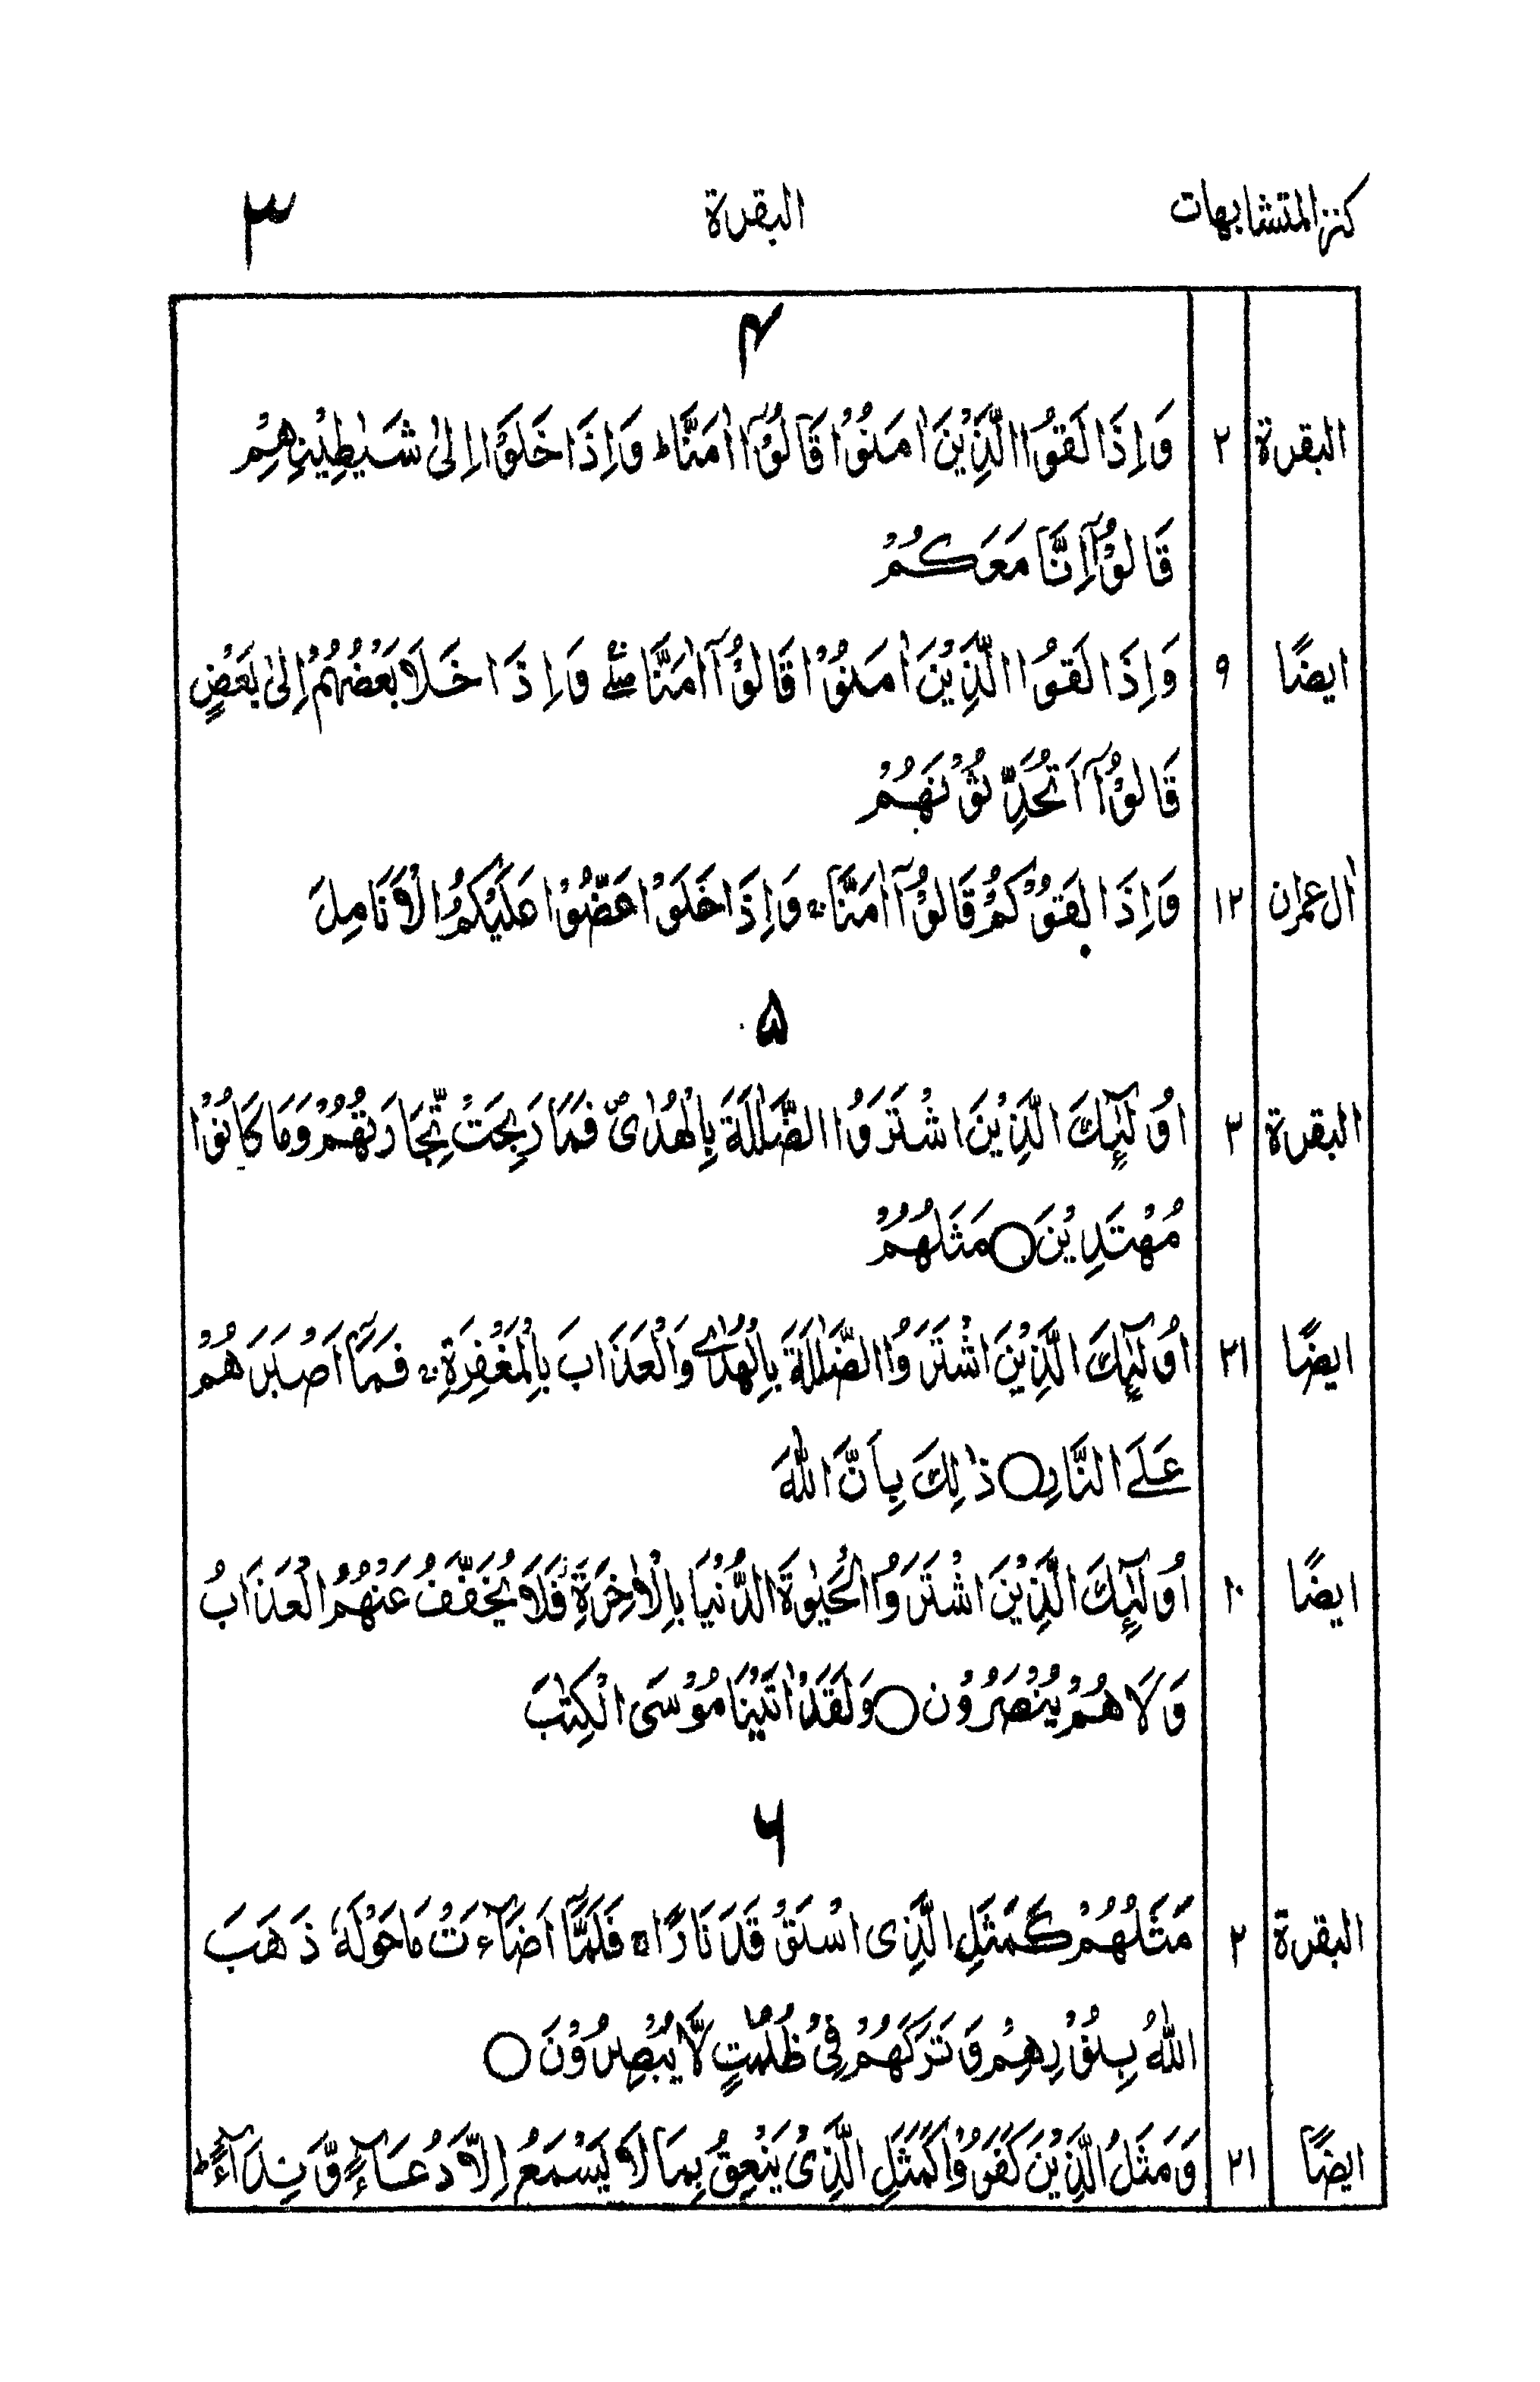 كنز المتشابهات البقرة ٣
۴
البقرة ٢ وَاِذَا لَقُوا الَّذِيْنَ اٰمَنُوْا قَالُوْٓا اٰمَنَّا ط وَاِذَا خَلَوْا اِلٰى شَيٰطِيْنِهِمْ
قَالُوْٓا اِنَّا مَعَكُمْ
ايضًا ٩ وَاِذَا لَقُوا الَّذِيْنَ اٰمَنُوْا قَالُوْٓا اٰمَنَّا صلے وَاِذَا خَلَا بَعْضُهُمْ اِلٰى بَعْضٍ
قَالُوْٓا اَتُحَدِّثُوْنَهُمْ
اٰل عمران ١٢ وَاِذَا لَقُوْكُمْ قَالُوْٓا اٰمَنَّا وَاِذَا خَلَوْا عَضُّوْا عَلَيْكُمُ الْاَنَامِلَ
۵
البقرة ٢ اُولٰٓئِكَ الَّذِيْنَ اشْتَرَوُا الضَّلٰلَةَ بِالْهُدٰى فَمَا رَبِحَتْ تِّجَارَتُهُمْ وَمَا كَانُوْا
مُهْتَدِيْنَ ○ مَثَلُهُمْ
ايضًا ٢١ اُولٰٓئِكَ الَّذِيْنَ اشْتَرَوُا الضَّلٰلَةَ بِالْهُدٰے وَالْعَذَابَ بِالْمَغْفِرَةِ فَمَآ اَصْبَرَهُمْ
عَلَے النَّارِ ○ ذٰلِكَ بِاَنَّ اللّٰهَ
ايضًا ١٠ اُولٰٓئِكَ الَّذِيْنَ اشْتَرَوُا الْحَيٰوةَ الدُّنْيَا بِالْاٰخِرَةِ فَلَا يُخَفَّفُ عَنْهُمُ الْعَذَابُ
وَلَا هُمْ يُنْصَرُوْن ○ وَلَقَدْ اٰتَيْنَا مُوْسَى الْكِتٰبَ
۶
البقرة ٢ مَثَلُهُمْ كَمَثَلِ الَّذِى اسْتَوْقَدَ نَارًا فَلَمَّآ اَضَآءَتْ مَا حَوْلَهٗ ذَهَبَ
اللّٰهُ بِنُوْرِهِمْ وَتَرَكَهُمْ فِيْ ظُلُمٰتٍ لَّا يُبْصِرُوْنَ ○
ايضًا ٢١ وَمَثَلُ الَّذِيْنَ كَفَرُوْا كَمَثَلِ الَّذِىْ يَنْعِقُ بِمَا لَا يَسْمَعُ اِلَّا دُعَآءً وَّنِدَآءً ط